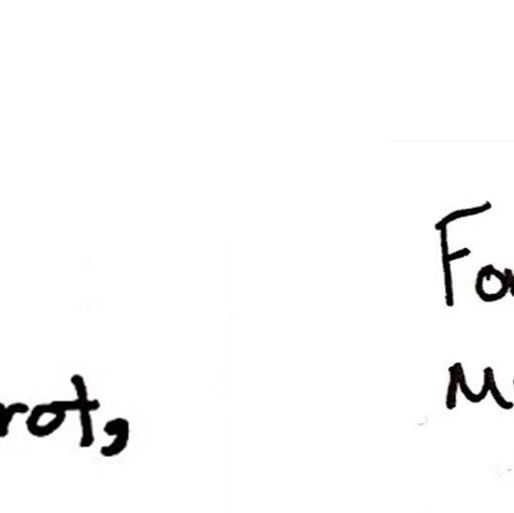 rot,
Fo
M